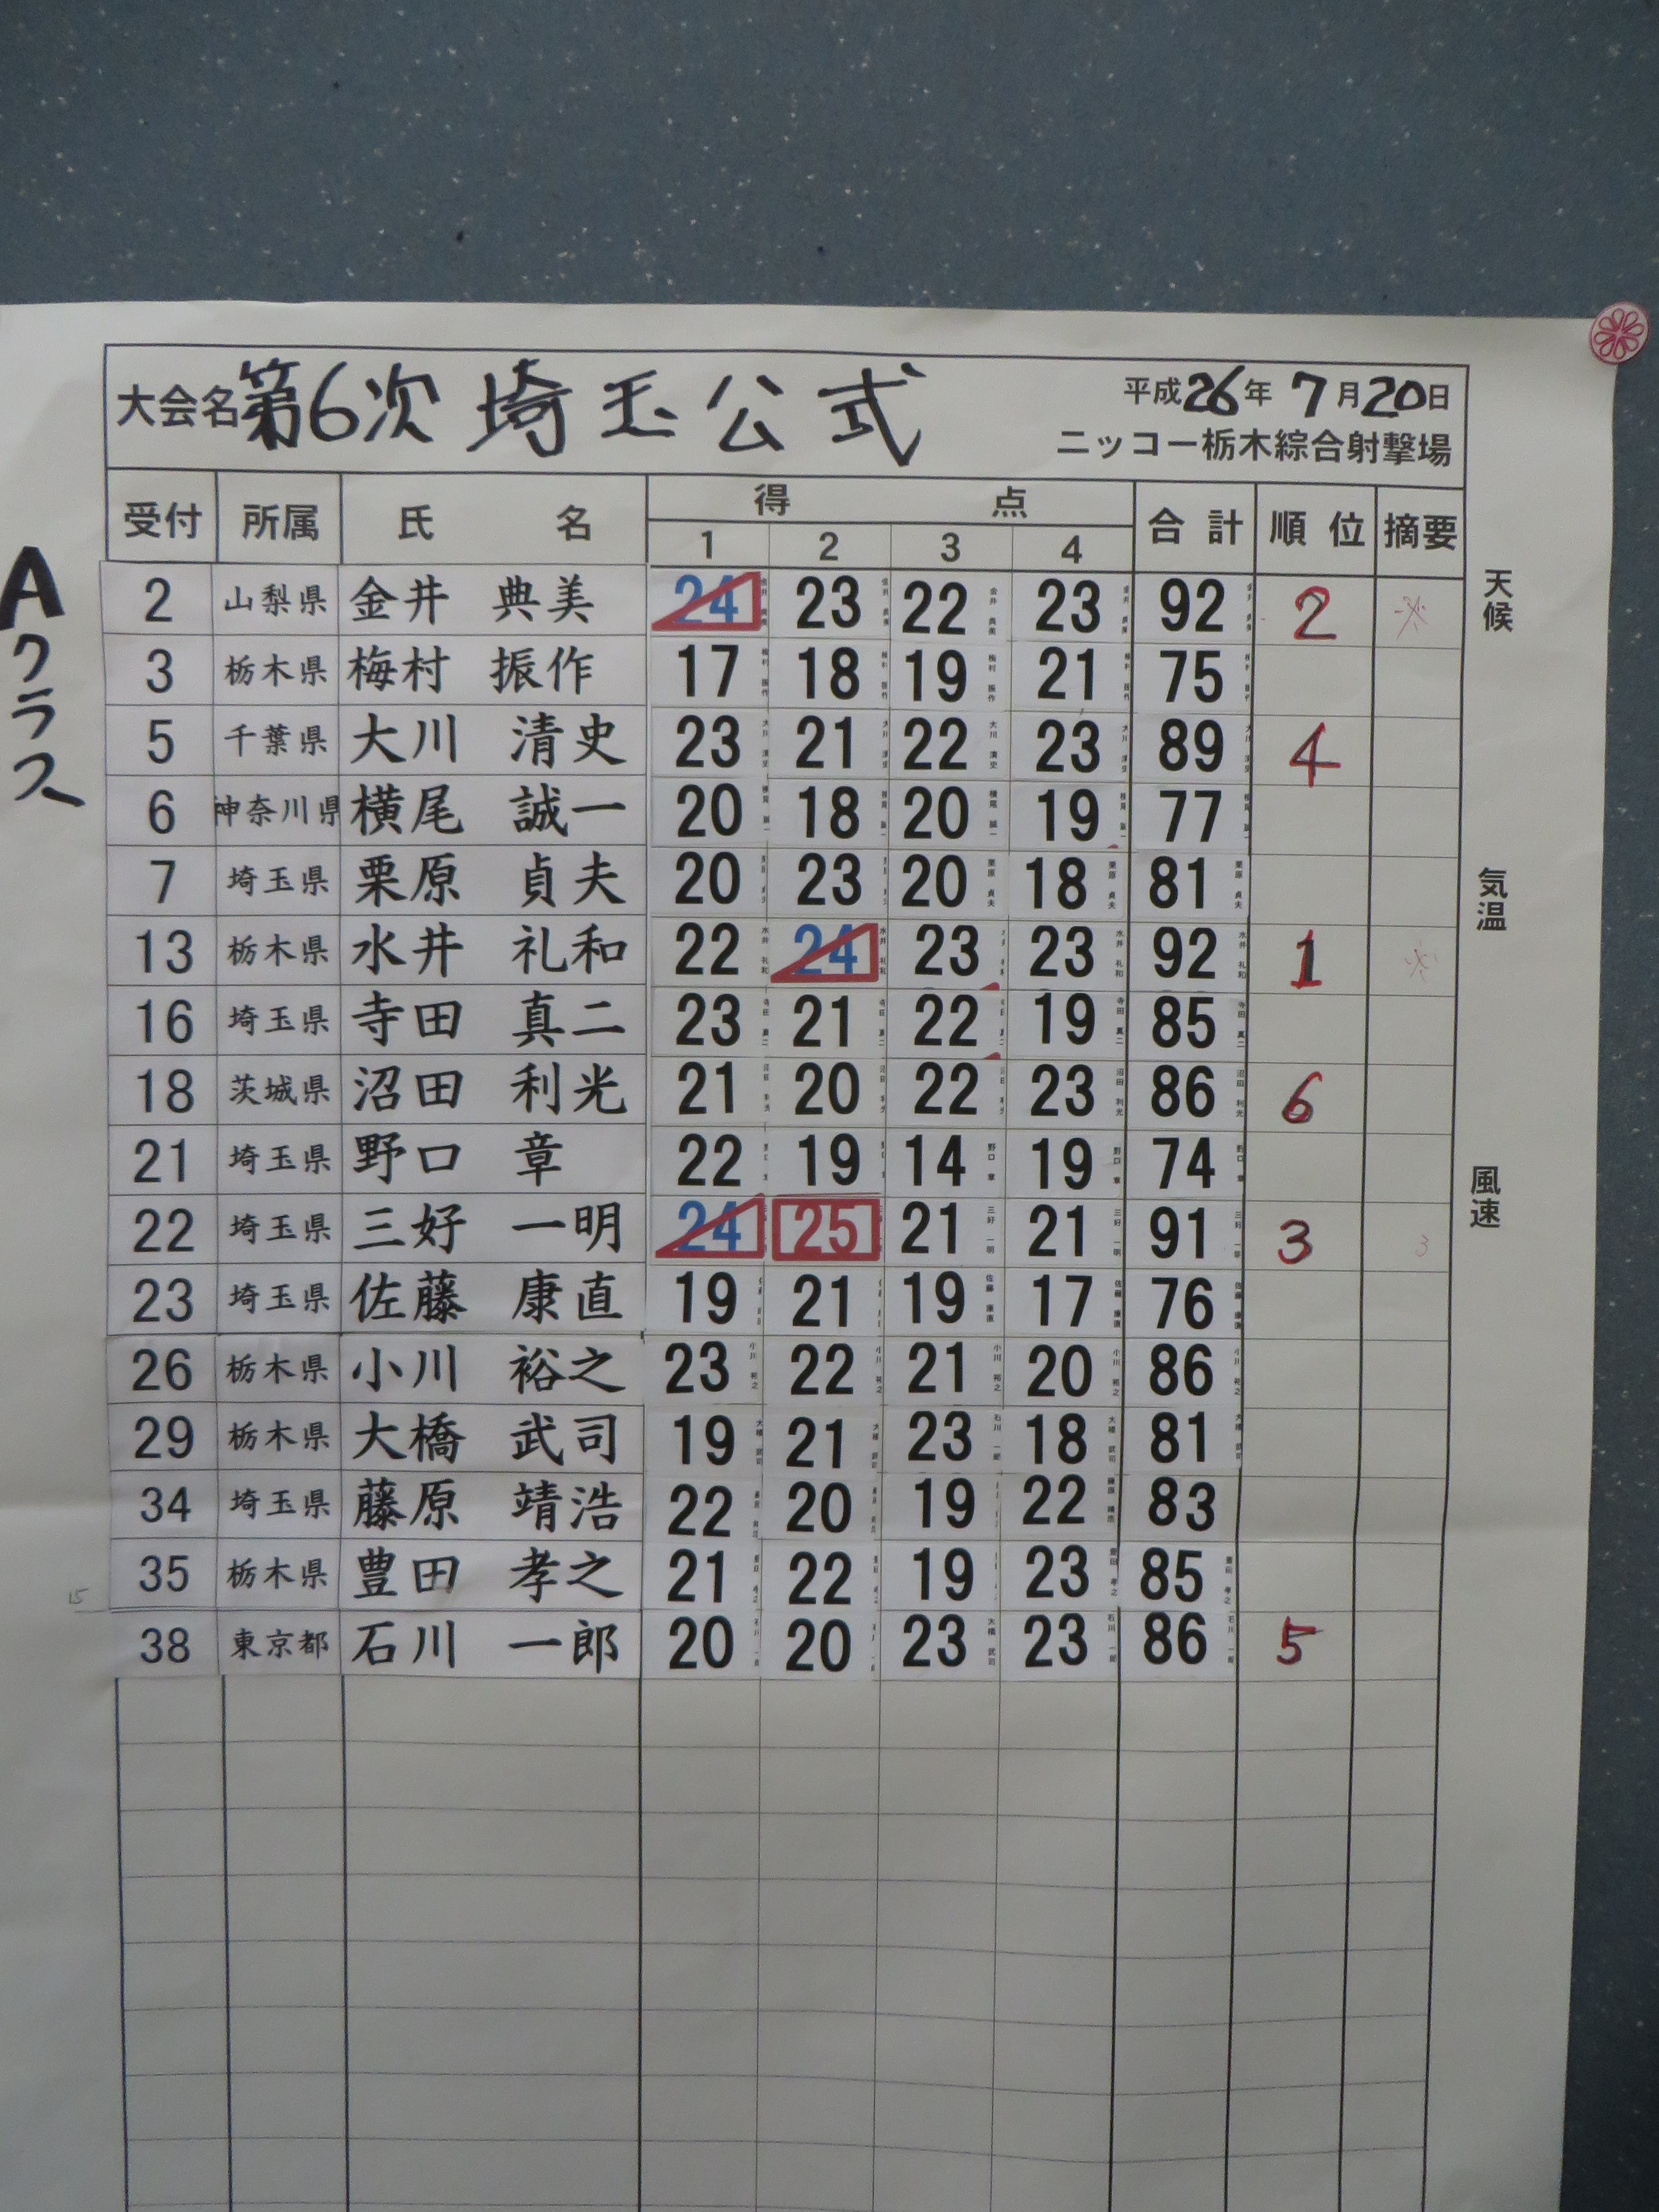 大会名 第6次 埼玉公式 平成26年 7月20日
ニッコー栃木綜合射撃場
受付 所属 氏名 得点 合計 順位 摘要
1 2 3 4
Aクラス
2 山梨県 金井 典美 24 23 22 23 92 2
3 栃木県 梅村 振作 17 18 19 21 75
5 千葉県 大川 清史 23 21 22 23 89 4
6 神奈川県 横尾 誠一 20 18 20 19 77
7 埼玉県 栗原 貞夫 20 23 20 18 81
13 栃木県 水井 礼和 22 24 23 23 92 1
16 埼玉県 寺田 真二 23 21 22 19 85
18 茨城県 沼田 利光 21 20 22 23 86 6
21 埼玉県 野口 章 22 19 14 19 74
22 埼玉県 三好 一明 24 25 21 21 91 3 3
23 埼玉県 佐藤 康直 19 21 19 17 76
26 栃木県 小川 裕之 23 22 21 20 86
29 栃木県 大橋 武司 19 21 23 18 81
34 埼玉県 藤原 靖浩 22 20 19 22 83
35 栃木県 豊田 孝之 21 22 19 23 85
15
38 東京都 石川 一郎 20 20 23 23 86 5
天候
気温
風速